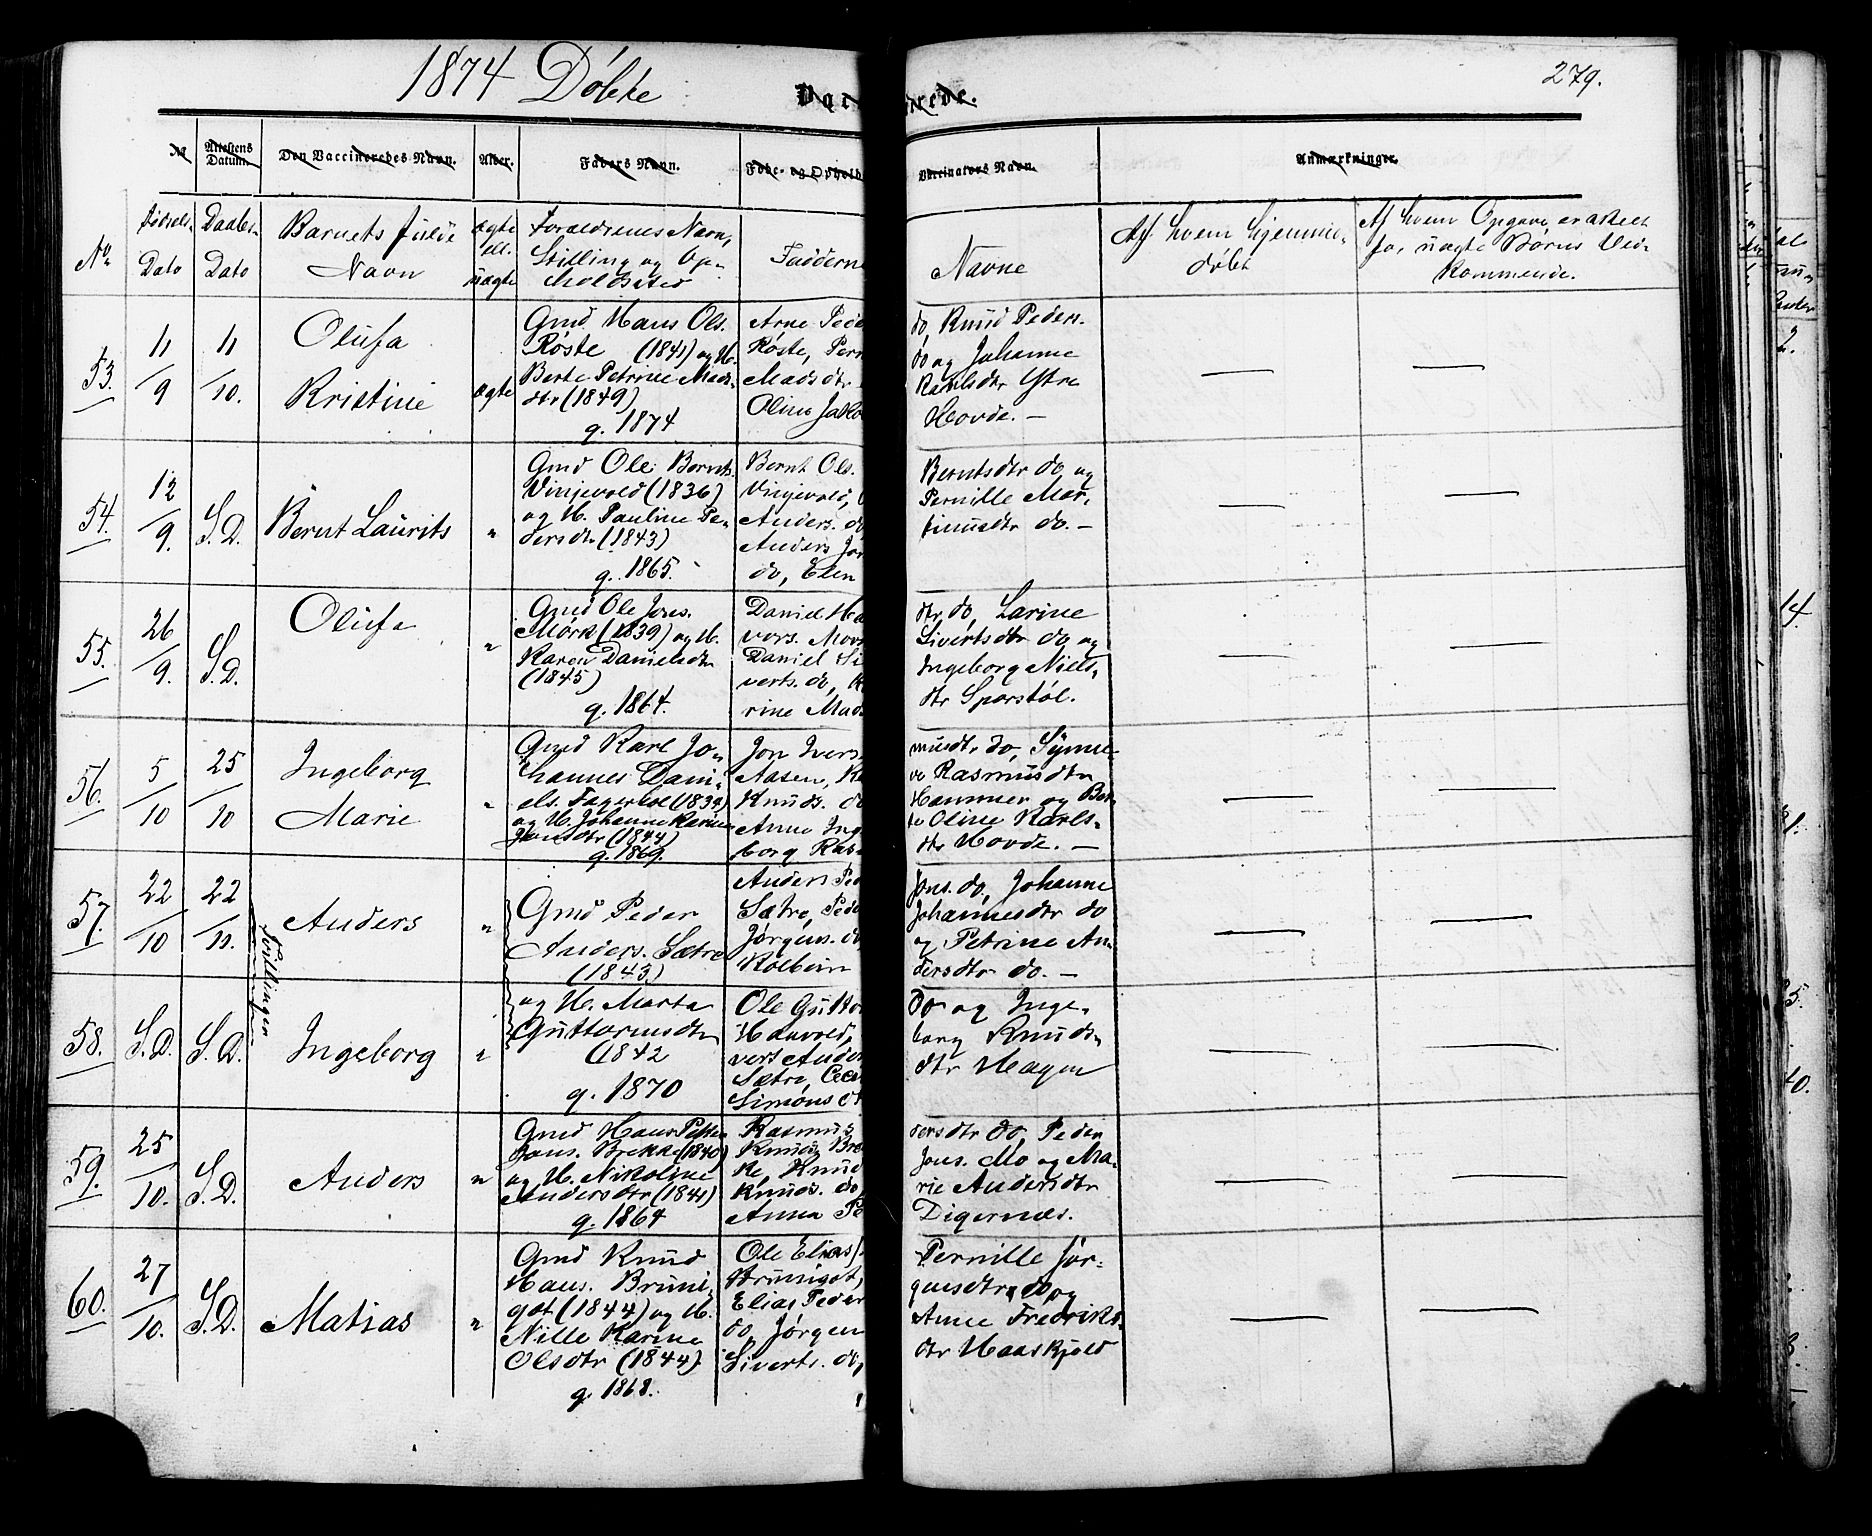 1874 Döbte
279.
Vac
rede.
№
Attestens Datum.
Den Vaccineredes Navn.
Alder.
Faders Navn.
Føde- og Ophold
Vaccinators Navn.
Anmærkninger.
No
Fødsels-
Dato
Daabs-
Dato
Barnets fulde
Navn
ægte
ell.
uægte
Forældrenes Navn,
Stilling og Op-
holdssted
Faddernes
Navne
Af hvem hjemme-
döbt
Af hvem Opgave er afskeet
for uægte Börns Ved-
kommende.
53.
11/9
11/10.
Olufa
Kristine
ægte
Gmd Hans Ols.
Røste (1841) og H.
Berte Petrine Mads-
dtr (1849)
g. 1874
Arne Pede
Røste, Pern
Madsdtr
Oline Jako
do, Knud Peders.
do og Johanne
Karlsdtr Ytre
Hovde. —
54.
12/9.
S.D.
Bernt Laurits
"
Gmd Ole Bernts.
Vinjevold (1836)
og H. Pauline Pe-
dersdtr (1843)
g. 1865.
Bernt Ols.
Vinjevold,
Anders. do
Anders Jör
do, Elen
Berntsdtr do og
Pernille Mar-
tinusdtr do. —
55.
26/9.
S.D.
Olufa
"
Gmd Ole Jons.
Mörk (1839) og H.
Karen Danielsdtr
(1845)
g. 1864.
Daniel Ha
vors. Mör
Daniel Si
verts. do, K
rine Mads
dtr do, Larine
Sivertsdtr do og
Ingeborg Niels-
dtr Sporstöl.
56.
5/10
25/10
Ingeborg
Marie
"
Gmd Karl Jo-
hannes Dani-
els. Fagerhol (1839)
og H. Johanne Karine
Jonsdtr (1844)
g. 1869.
Jon Ivers
Aasen, K
Knuds. do
Anne Inge
borg Ras
musdtr do, Synne-
ve Rasmusdtr
Hammer og Ber-
te Oline Karls-
dtr Hovde. —
57.
22/10
22/11.
Anders
"
Tvillinger
Gmd Peder
Anders. Sætre
(1843)
Anders Ped
Sætre, Pede
Jörgens. do
Kolbein
Jons. do, Johanne
Johannesdtr do
og Petrine An-
dersdtr do. —
58.
S.D.
S.D.
Ingeborg
"
og H. Marta
Guttormsdtr
(1842
g. 1870
Ole Gutto
Haavold,
vert Ander
Sætre, Ceci
Simonsdt
do og Inge-
borg Knuds-
dtr Hagen
59.
25/10.
S.D.
Anders
"
Gmd Hans Petter
Jons. Brekke (1840)
og H. Nikoline
Andersdtr (1841)
g. 1864
Rasmus
Knuds. Bre
ke, Knud
Knuds. do,
Anna Pe
dersdtr do, Peder
Jons. Mo og Ma-
rie Andersdtr
Digernæs.
60.
27/10.
S.D.
Matias
"
Gmd Knud
Hans. Bruni-
got (1844) og H.
Nille Karine
Olsdtr (1844)
g. 1868.
Ole Elias
Brunigot,
Elias Peder
do, Jörgen
Siverts. do,
Pernille Jör-
gensdtr do, og
Anne Fredriks-
dtr Haaskjold
2.
14.